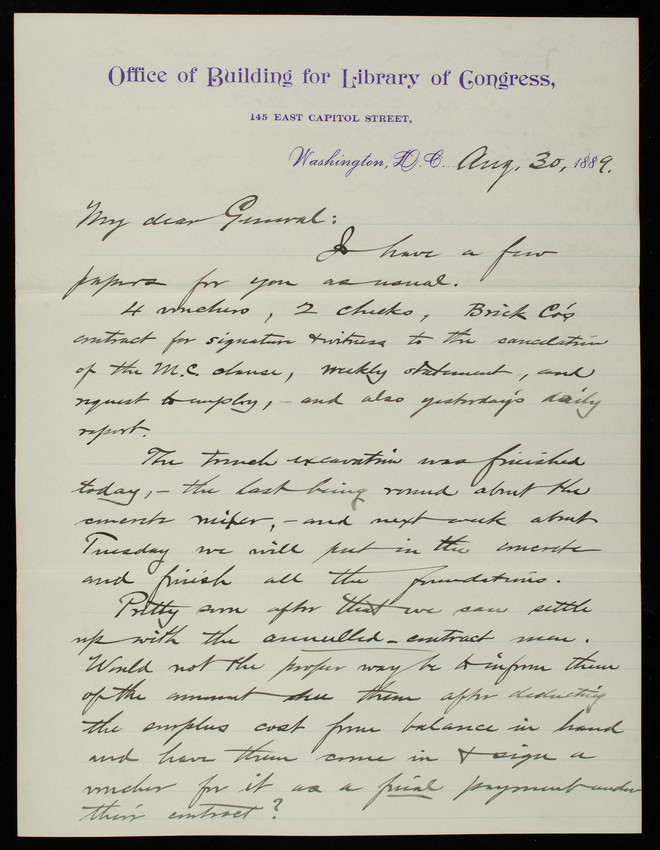 Office of Building for Library of Congress,
145 EAST CAPITOL STREET,
Washington, D.C. Aug. 30, 1889.
My dear General:
I have a few
papers for you as usual.
4 vouchers, 2 checks, Brick Co's
contract for signature & witness to the cancelation
of the M.C. clause, weekly statement, and
request to employ, – and also yesterday's daily
report.
The trench excavation was finished
today, – the last being round about the
concrete mixer, – and next week about
Tuesday we will put in the concrete
and finish all the foundations.
Pretty soon after that we can settle
up with the annulled-contract men.
Would not the proper way be to inform them
of the amount due them after deducting
the surplus cost from balance in hand
and have them come in & sign a
voucher for it as a final payment under
their contract?